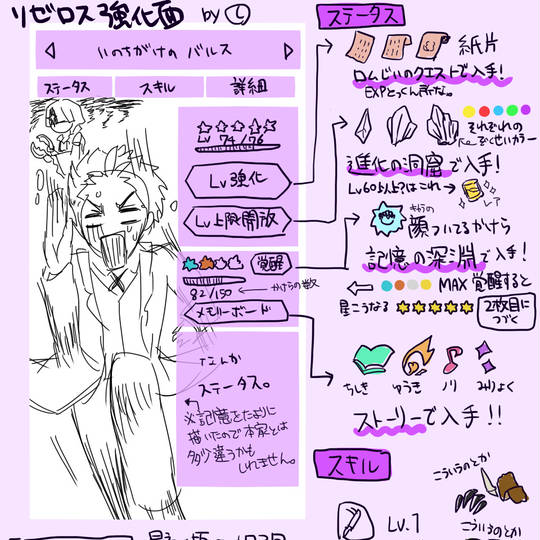 リゼロス強化面 by Ⓛ
いのちがけの バルス
ステータス
スキル
詳細
Lv 74/76
Lv強化
Lv上限開放
覚醒
82/150 ← かけらの数
メモリーボード
なんか
ステータス。
※記憶をたよりに
描いたので本家とは
多少違うかも
しれません。
ステータス
紙片
ロムじいのクエストで入手!
EXPとっくんまーな。
それぞれの
ぞくせいカラー
進化の洞窟で入手!
Lv60以上?はこれ→
レア
キラの
顔ついてるかけら
記憶の深淵で入手!
MAX 覚醒すると
星こうなる
2枚目に
つづく
ちしき
ゆうき
ノリ
みりょく
ストーリーで入手!!
スキル
こういうのとか
Lv.1
こういうのとか